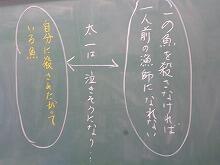 この魚を殺さなければ
一人前の漁師になれない
太一は泣きそうになり…
自分に殺されたがって
いる魚